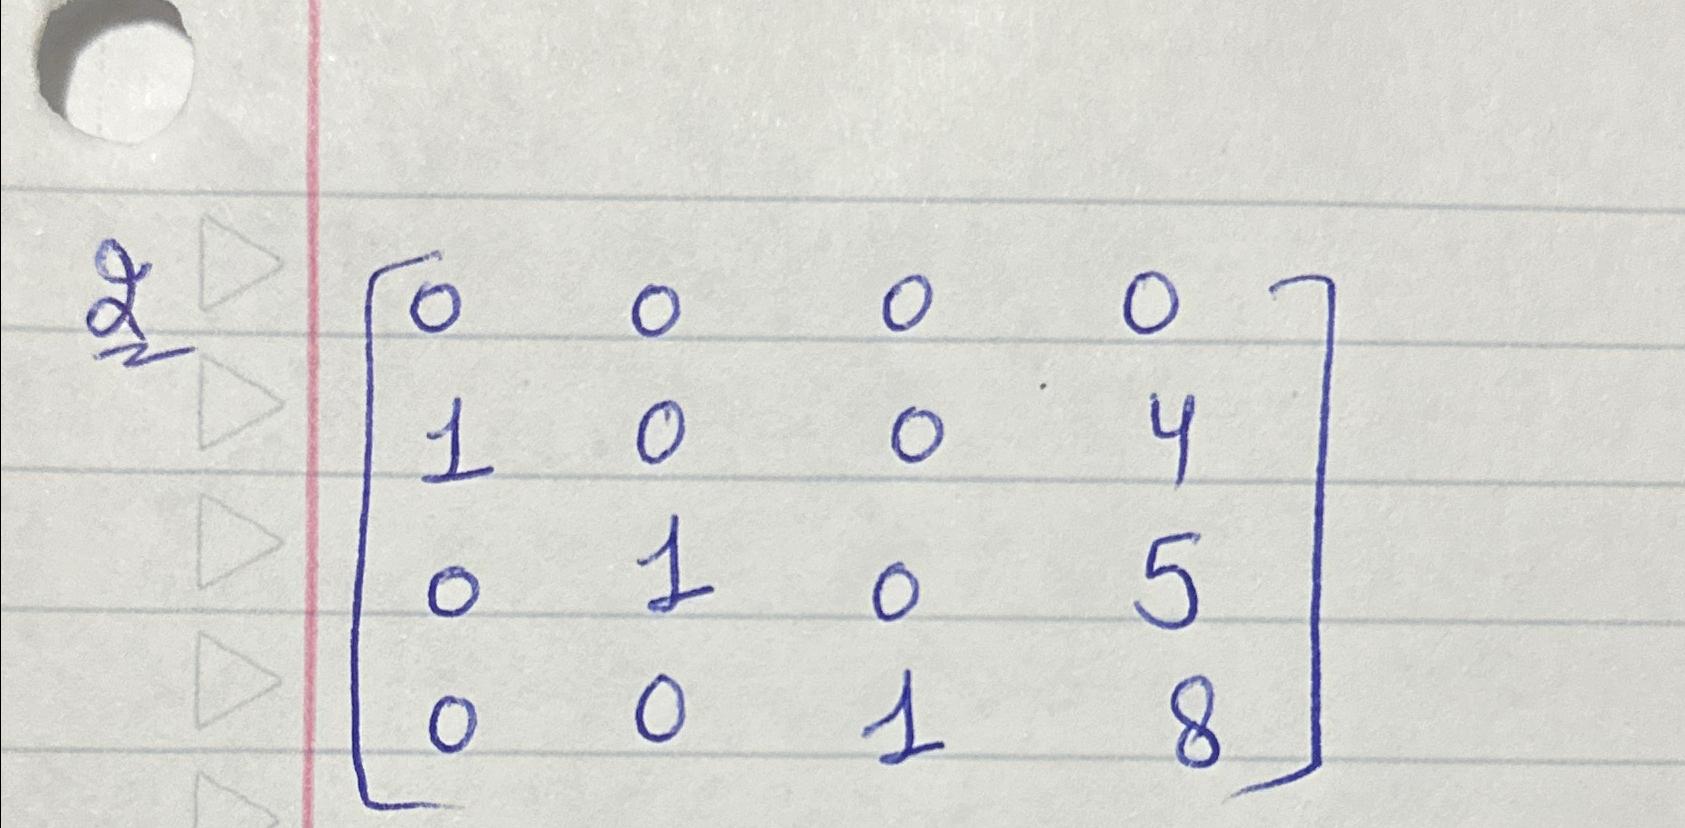 2 0 0 0 0
1 0 0 4
0 1 0 5
0 0 1 8